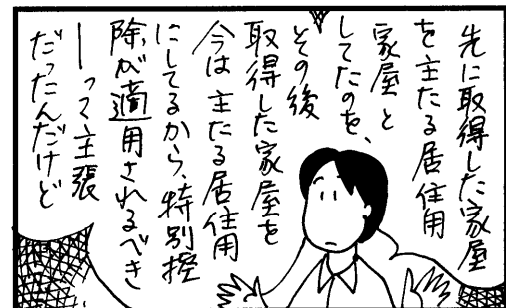 先に取得した家屋
を主たる居住用
家屋と
してたのを、
その後
取得した家屋を
今は主たる居住用
にしてるから、特別控
除が適用されるべき
ーって主張
だったんだけど